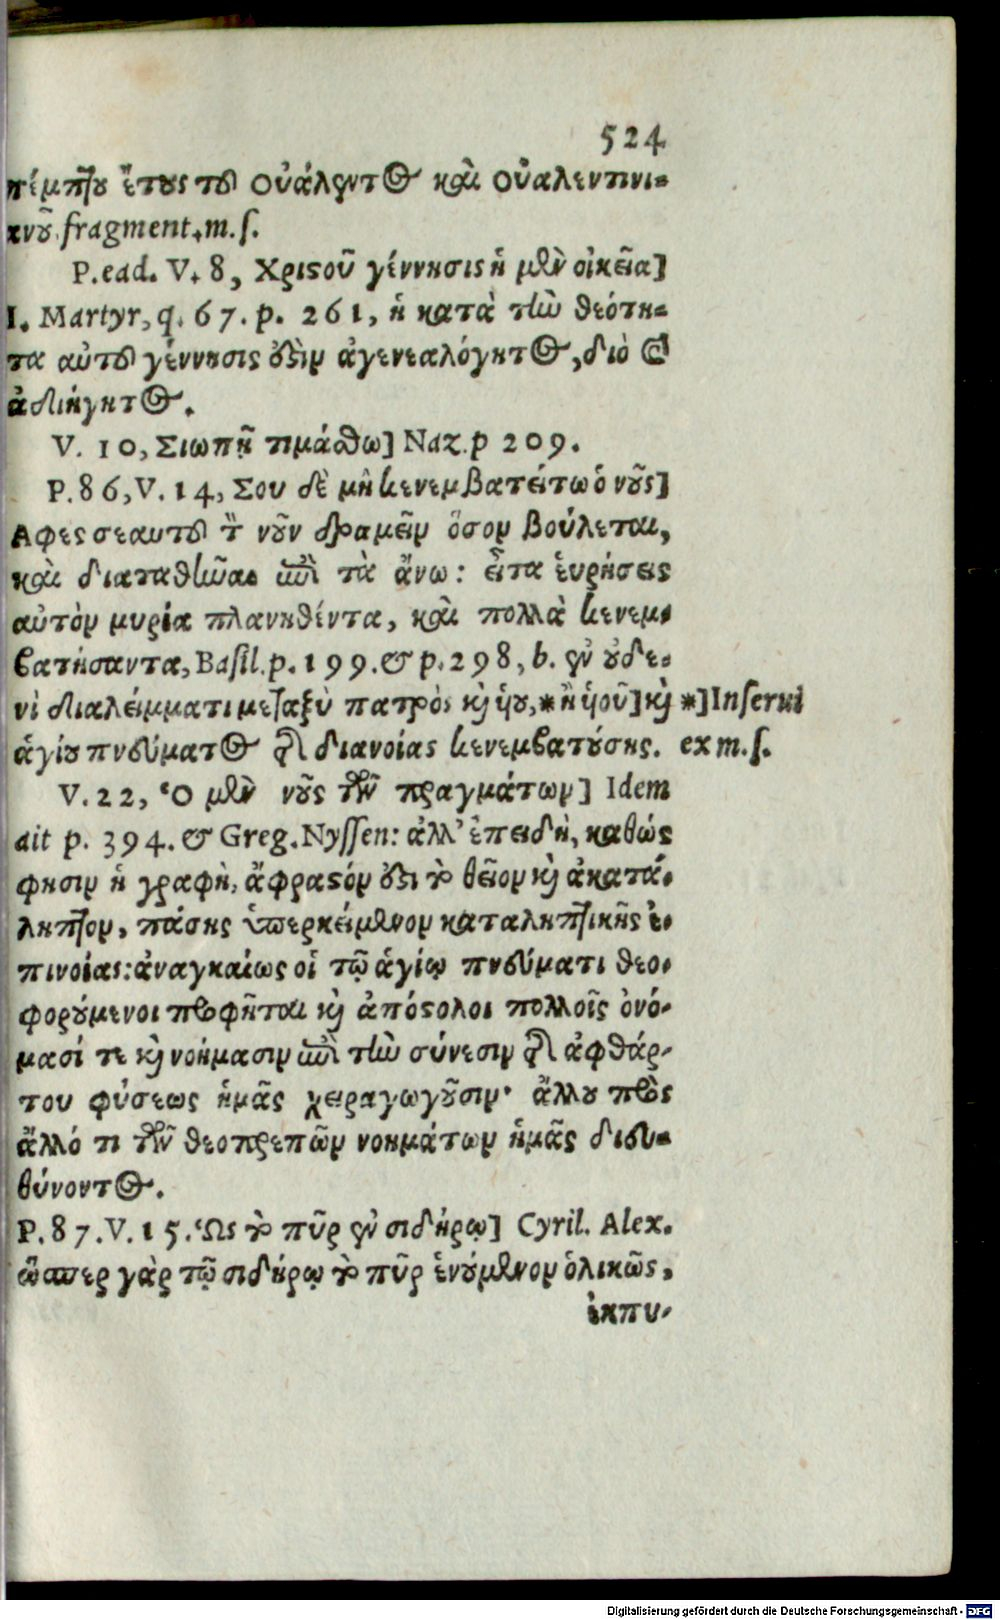 524
πέμπτου ἔτους τοῦ Οὐάλεντος καὶ Οὐαλεντινι-
ανοῦ. fragment. m. ſ.
P. ead. V. 8, Χριστοῦ γέννησις ἡ μὲν οἰκεῖα]
I. Martyr, q. 67. p. 261, ἡ κατὰ τὴν θεότη-
τα αὐτοῦ γέννησις ὅθεν ἀγενεαλόγητος, διὸ καὶ
ἀδιήγητος.
V. 10, Σιωπῇ τιμάσθω] Naz. p 209.
P. 86, V. 14, Σου δὲ μὴ κενεμβατείτω ὁ νοῦς]
Αφες σεαυτοῦ τὸν νοῦν δραμεῖν ὅσον βούλεται,
καὶ διαταθῆναι ἐπὶ τὰ ἄνω: εἶτα ἑυρήσεις
αὐτὸν μυρία πλανηθέντα, καὶ πολλὰ κενεμ-
βατήσαντα, Baſil. p. 199. & p. 298, b. ἐν οὐδε-
νὶ διαλείμματι μεταξὺ πατρὸς κὶ ὑοῦ, *ἢ ὑοῦ] κὶ *] Inſerui
ἁγίου πνεύματος τῆς διανοίας κενεμβατούσης. ex m. ſ.
V. 22, Ὁ μὲν νοῦς τῶν πραγμάτων] Idem
ait p. 394. & Greg. Nyſſen: ἀλλ' ἐπειδὴ, καθώς
φησιν ἡ γραφὴ, ἄφραστόν ἐστι τὸ θεῖον κὶ ἀκατά-
ληπτον, πάσης ὑπερκείμενον καταληπτικῆς ἐ-
πινοίας: ἀναγκαίως οἱ τῷ ἁγίῳ πνεύματι θεο-
φορούμενοι προφῆται κὶ ἀπόστολοι πολλοῖς ὀνό-
μασί τε κὶ νοήμασιν ἐπὶ τὴν σύνεσιν τῆς ἀφθάρ-
του φύσεως ἡμᾶς χειραγωγοῦσιν· ἄλλου πρὸς
ἄλλό τι τῶν θεοπρεπῶν νοημάτων ἡμᾶς διευ-
θύνοντος.
P. 87. V. 15. Ὡς τὸ πῦρ ἐν σιδήρῳ] Cyril. Alex.
ὥσπερ γὰρ τῷ σιδήρῳ τὸ πῦρ ἑνούμενον ὁλικῶς,
ἐκπυ-
Digitalisierung gefördert durch die Deutsche Forschungsgemeinschaft - DFG